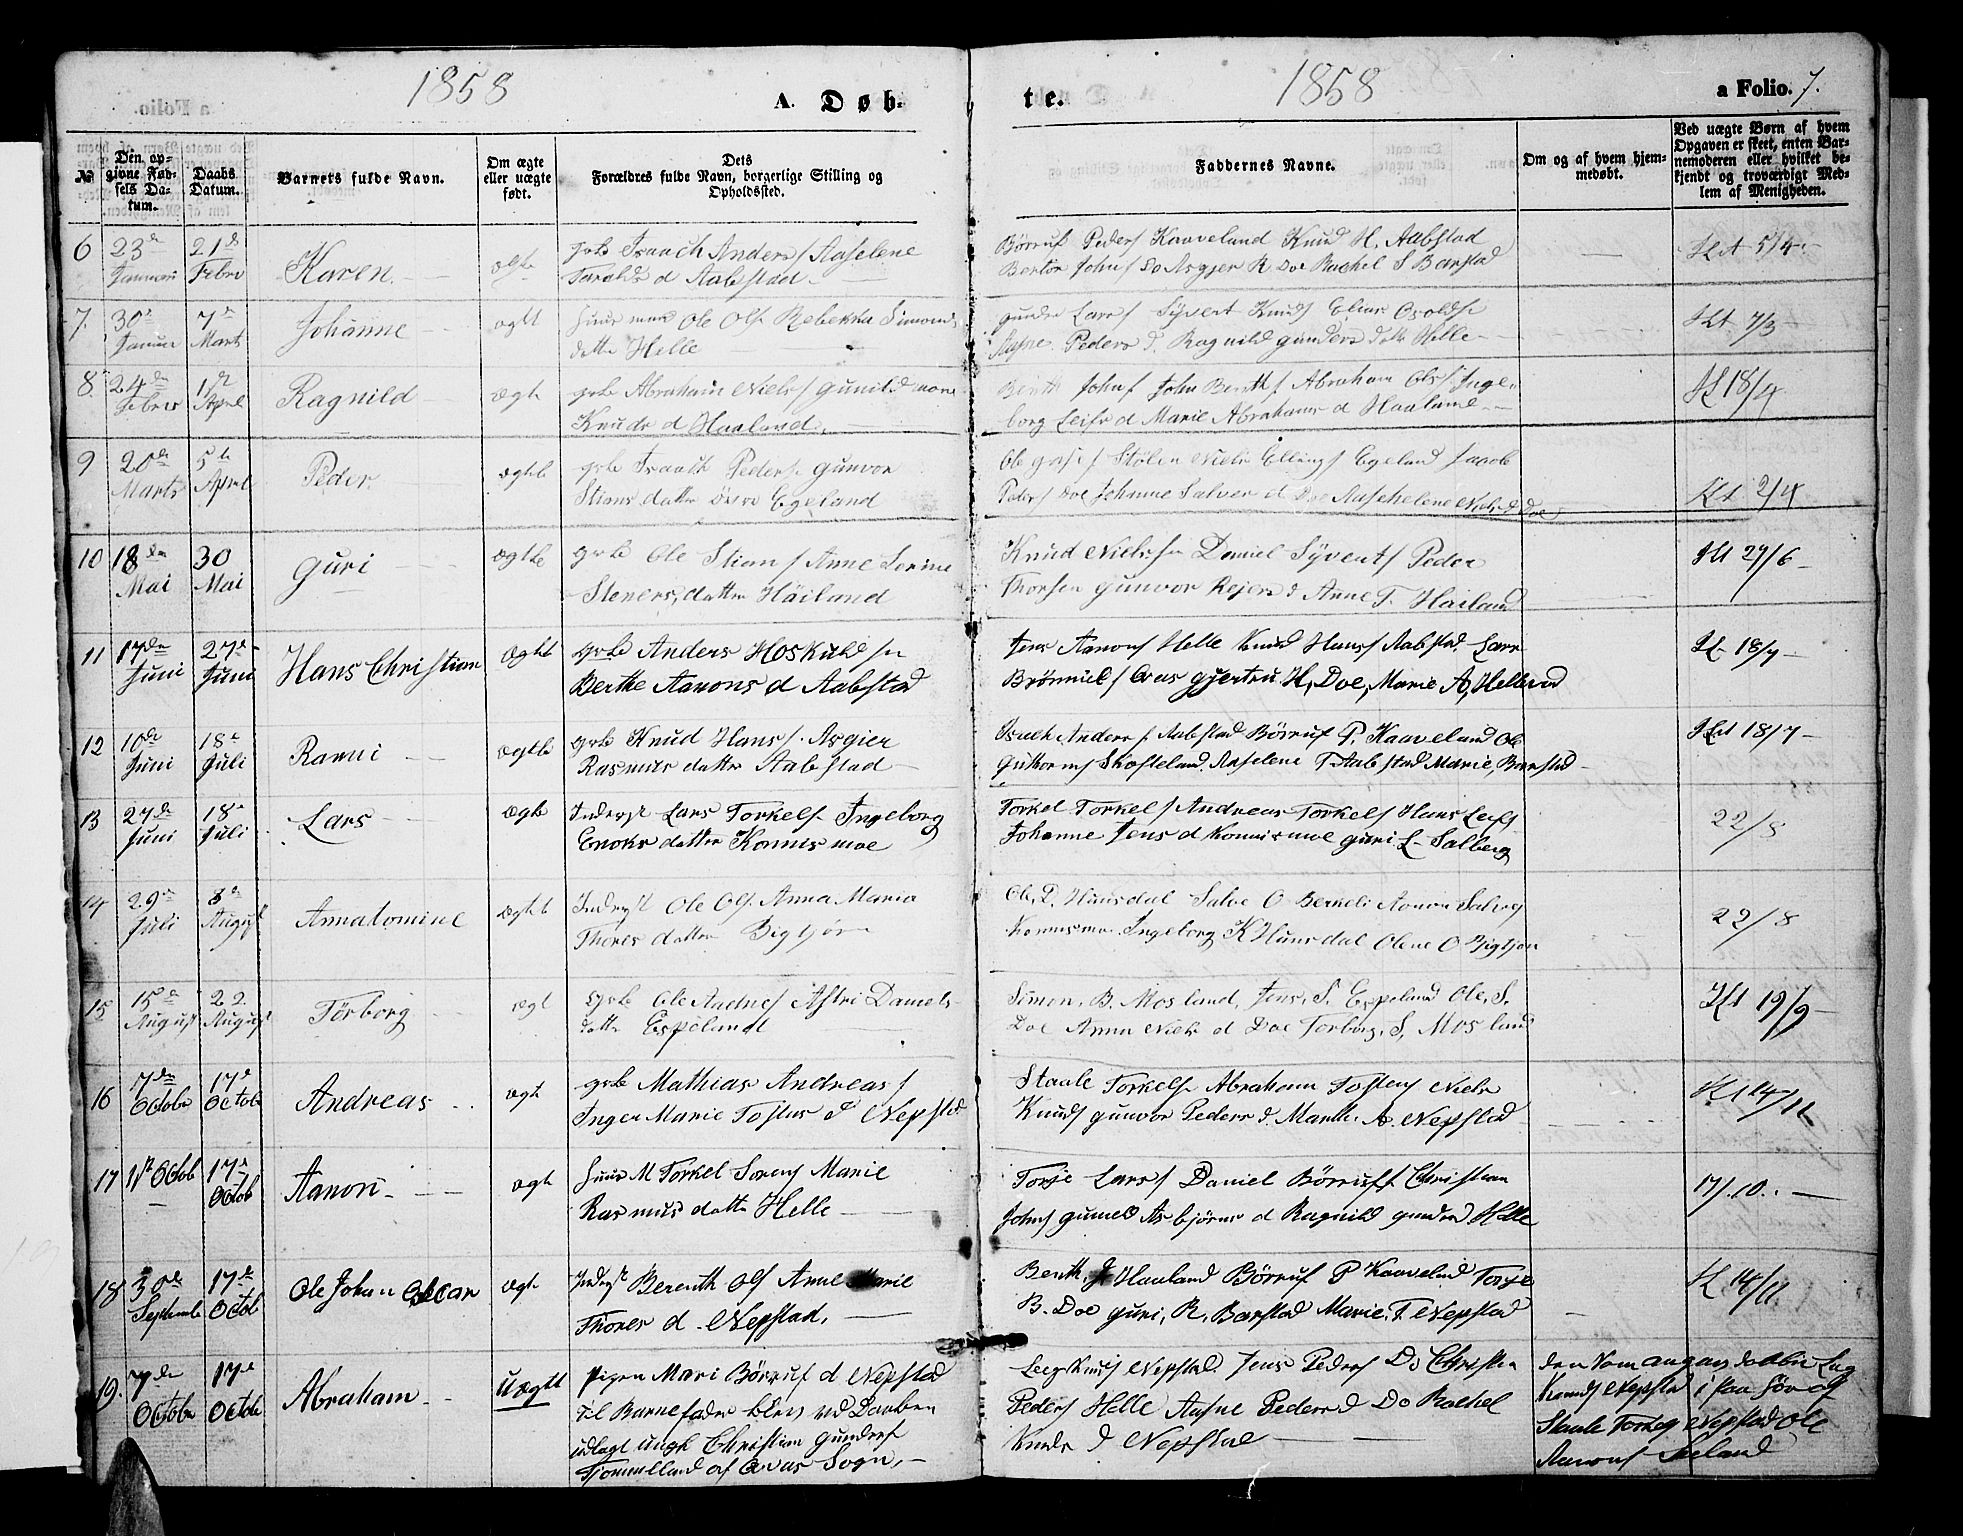 1858
A. Døb-
te.
1858
a Folio. 7.
№
Den opgivne Fødsels Datum.
Daabs Datum.
Barnets fulde Navn.
Om ægte eller uægte født.
Dets Forældres fulde Navn, borgerlige Stilling og Opholdssted.
Faddernes Navne.
Om og af hvem hjemmedøbt.
Ved uægte Børn af hvem Opgaven er skeet, enten Barnemoderen eller hvilket bekjendt og troværdigt Medlem af Menigheden.
6 23de Januari 21de Febru Karen
grb Isaach Anders f Aaselene
Taralds d Aabstad
Børruf Peders Kaaveland Knud H. Aabstad
Bertor Johns Do Asgjer R Doe Rachel S Barstad
5/4
7. 30te Januar 7de Marts Johanne ægte
Huus man Ole Ols Rebekka Simons
datter Helle
Gunder Lars f Syvert Knuds Elias Osolds
Aasne Peders d. Ragnild Gunders datt Helle
7/3
8. 24de Febru 1ste April Ragnild ægte
grb Abraham Niels f Gunild
Knuds d Haaland
Berith Johns f John Beriths f Abraham Ols f Inge
borg Leifs d Marie Abrahams d Haaland
18/4
9 20de Marts 5te April Peder ægte
grb Isaach Peders Gunvor
Stians datter øvre Egeland
Stølen Niels Ellings f Egeland Jacob
Peders Doe Johanne Salves d Doe Aasehelene Niels d Doe
2/4
10 18de Mai 30 Mai Guri ægte
grb Ole Stians f Anne Serine
Steners datter Häiland
Knud Nielsen Daniel Syverts f Peder
Thorsen Gunvor Reiers d Anne T. Häiland
27/6
11 17de Juni 27de Juni Hans Christian ægte
grb Anders Hoskulds
Berthe Aanons d Aabstad
Jens Aanons f Helle Knud Hans f Aabstad Lars
Brønniels f Ovas Gjertru. H, Doe, Marie A, Helle
18/7
12 10de Juni 18de Juli Ramui ægte
grb Knud Hans f. Asgier
Rasmus datter Aabstad
Isach Anders f. Aabstad Børruf P. Kaaveland Ole
Guthorms Skofteland. Aaselene T Aabstad Marie, Barstad
18/7
13 27de Juni 18de Juli Lars ægte
Inderst Lars Torkels f Ingeborg
Enoks datter Konnismoe
Torkel Torkels f Andreas Torkels f Hans Leifs f
Johanne Jens d Konnismoe Guri L Salberg
22/8
14 29de Juli 8de August Annatomine ægte
Inderst Ole Ols. Anna Maria
Thores datter Bigtjøn
Ole, P. Huunsdal Salve O Berkeli Aanon Salves f
Konnismo. Ingeborg K Hunsdal Olene O Bigtjøn
22/8
15 15de August 22. August Tørborg ægt
grb Ole Andres f Astri Daniels
datter Espeland
Simon, B. Mosland, Jens, S. Espeland Ole, S.
Doe Anna Niels d Doe Torborg, S, Mosland
19/9
16 7de Octobr 17de Octobr Andreas ægt
grb Mathias Andreas f
Inger Marie Tostus d Nepstad
Staale Torkels f Abraham Tostens Niels
Knuds Gunvor Peders d. Marthe A. Nepstad
14/11
17 1ste Octob 17de Octob Aanon ægt
Huus M Torkel Sorens Marie
Rasmus datter Helle
Torje Lars f Daniel Børruf f Christian
Johns Guneld Asbjørns d Ragnild Gunders d Helle
17/10
18 30de Septembr 17de Octob Ole Johan Oscar ægt
Inderst Berenth Ols f Anne Marie
Thores d. Nepstad,
Berith. J Haaland Børruf P Kaaveland Torje
B. Doe Guri, R. Barstad Marie. T Nepstad
14/11
19. 7de Octobr 17de Octobr Abraham uægte
Pigen Mari Børruf d Nepstad
Til Barnefader blev ved Daaben
udlagt ungk Christian Gunders f
Tjommelland af Ovas Sogn.
Leeg Knuds Nepstad. Jens Peders f Do Christen
Peders Helle Aasne Peders d Do Rachel
Knuds d Nepstad
Knuds Nepstad
Staale Torkels Nepstad Ole